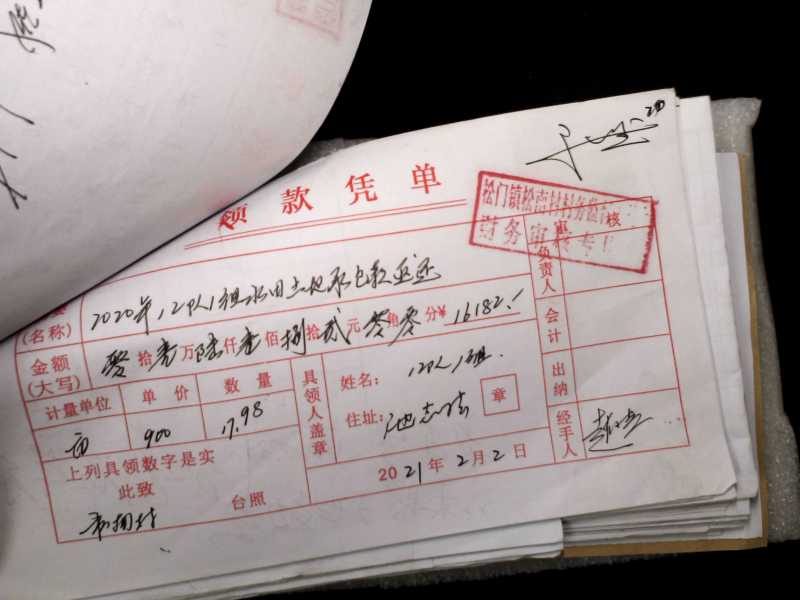 领款凭单
松门镇松南村村务监
财务审核专
审核
2020年，12队1组水田土地承包款返还
(名称)
金额(大写) 零拾壹万陆仟壹佰捌拾贰元零角零分¥16182.-
计量单位 单价 数量
亩 900 17.98
具领人盖章
姓名：12队1组.
住址：
章
上列具领数字是实
此致
台照
2021年2月2日
负责人
会计
出纳
经手人